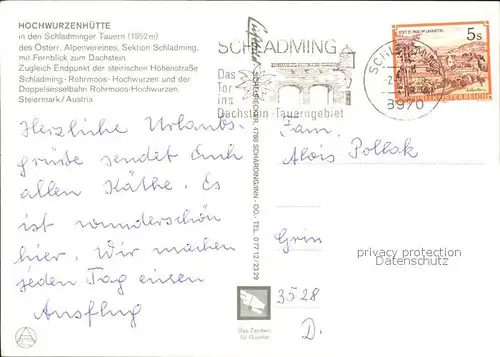 HOCHWURZENHÜTTE
in den Schladminger Tauern (1852m)
des Österr. Alpenvereines, Sektion Schladming,
mit Fernblick zum Dachstein.
Zugleich Endpunkt der steirischen Höhenstraße
Schladming - Rohrmoos - Hochwurzen und der
Doppelsesselbahn Rohrmoos-Hochwurzen.
Steiermark / Austria
Herzliche Urlaubs-
grüße sendet Euch
allen Käthe. Es
ist wunderschön
hier. Wir machen
jeden Tag einen
Ausflug
SCHLADMING
Das
Tor
ins
Dachstein-Tauerngebiet
4780 SCHÄRDING/INN - OÖ. - TEL. 07712/2329
5s
STIFT ST. PAUL IM LAVANTTAL
REPUBLIK ÖSTERREICH
8970
Fam.
Alois Pollak
3528
D.
privacy protection
Datenschutz
Das Zeichen
für Qualität